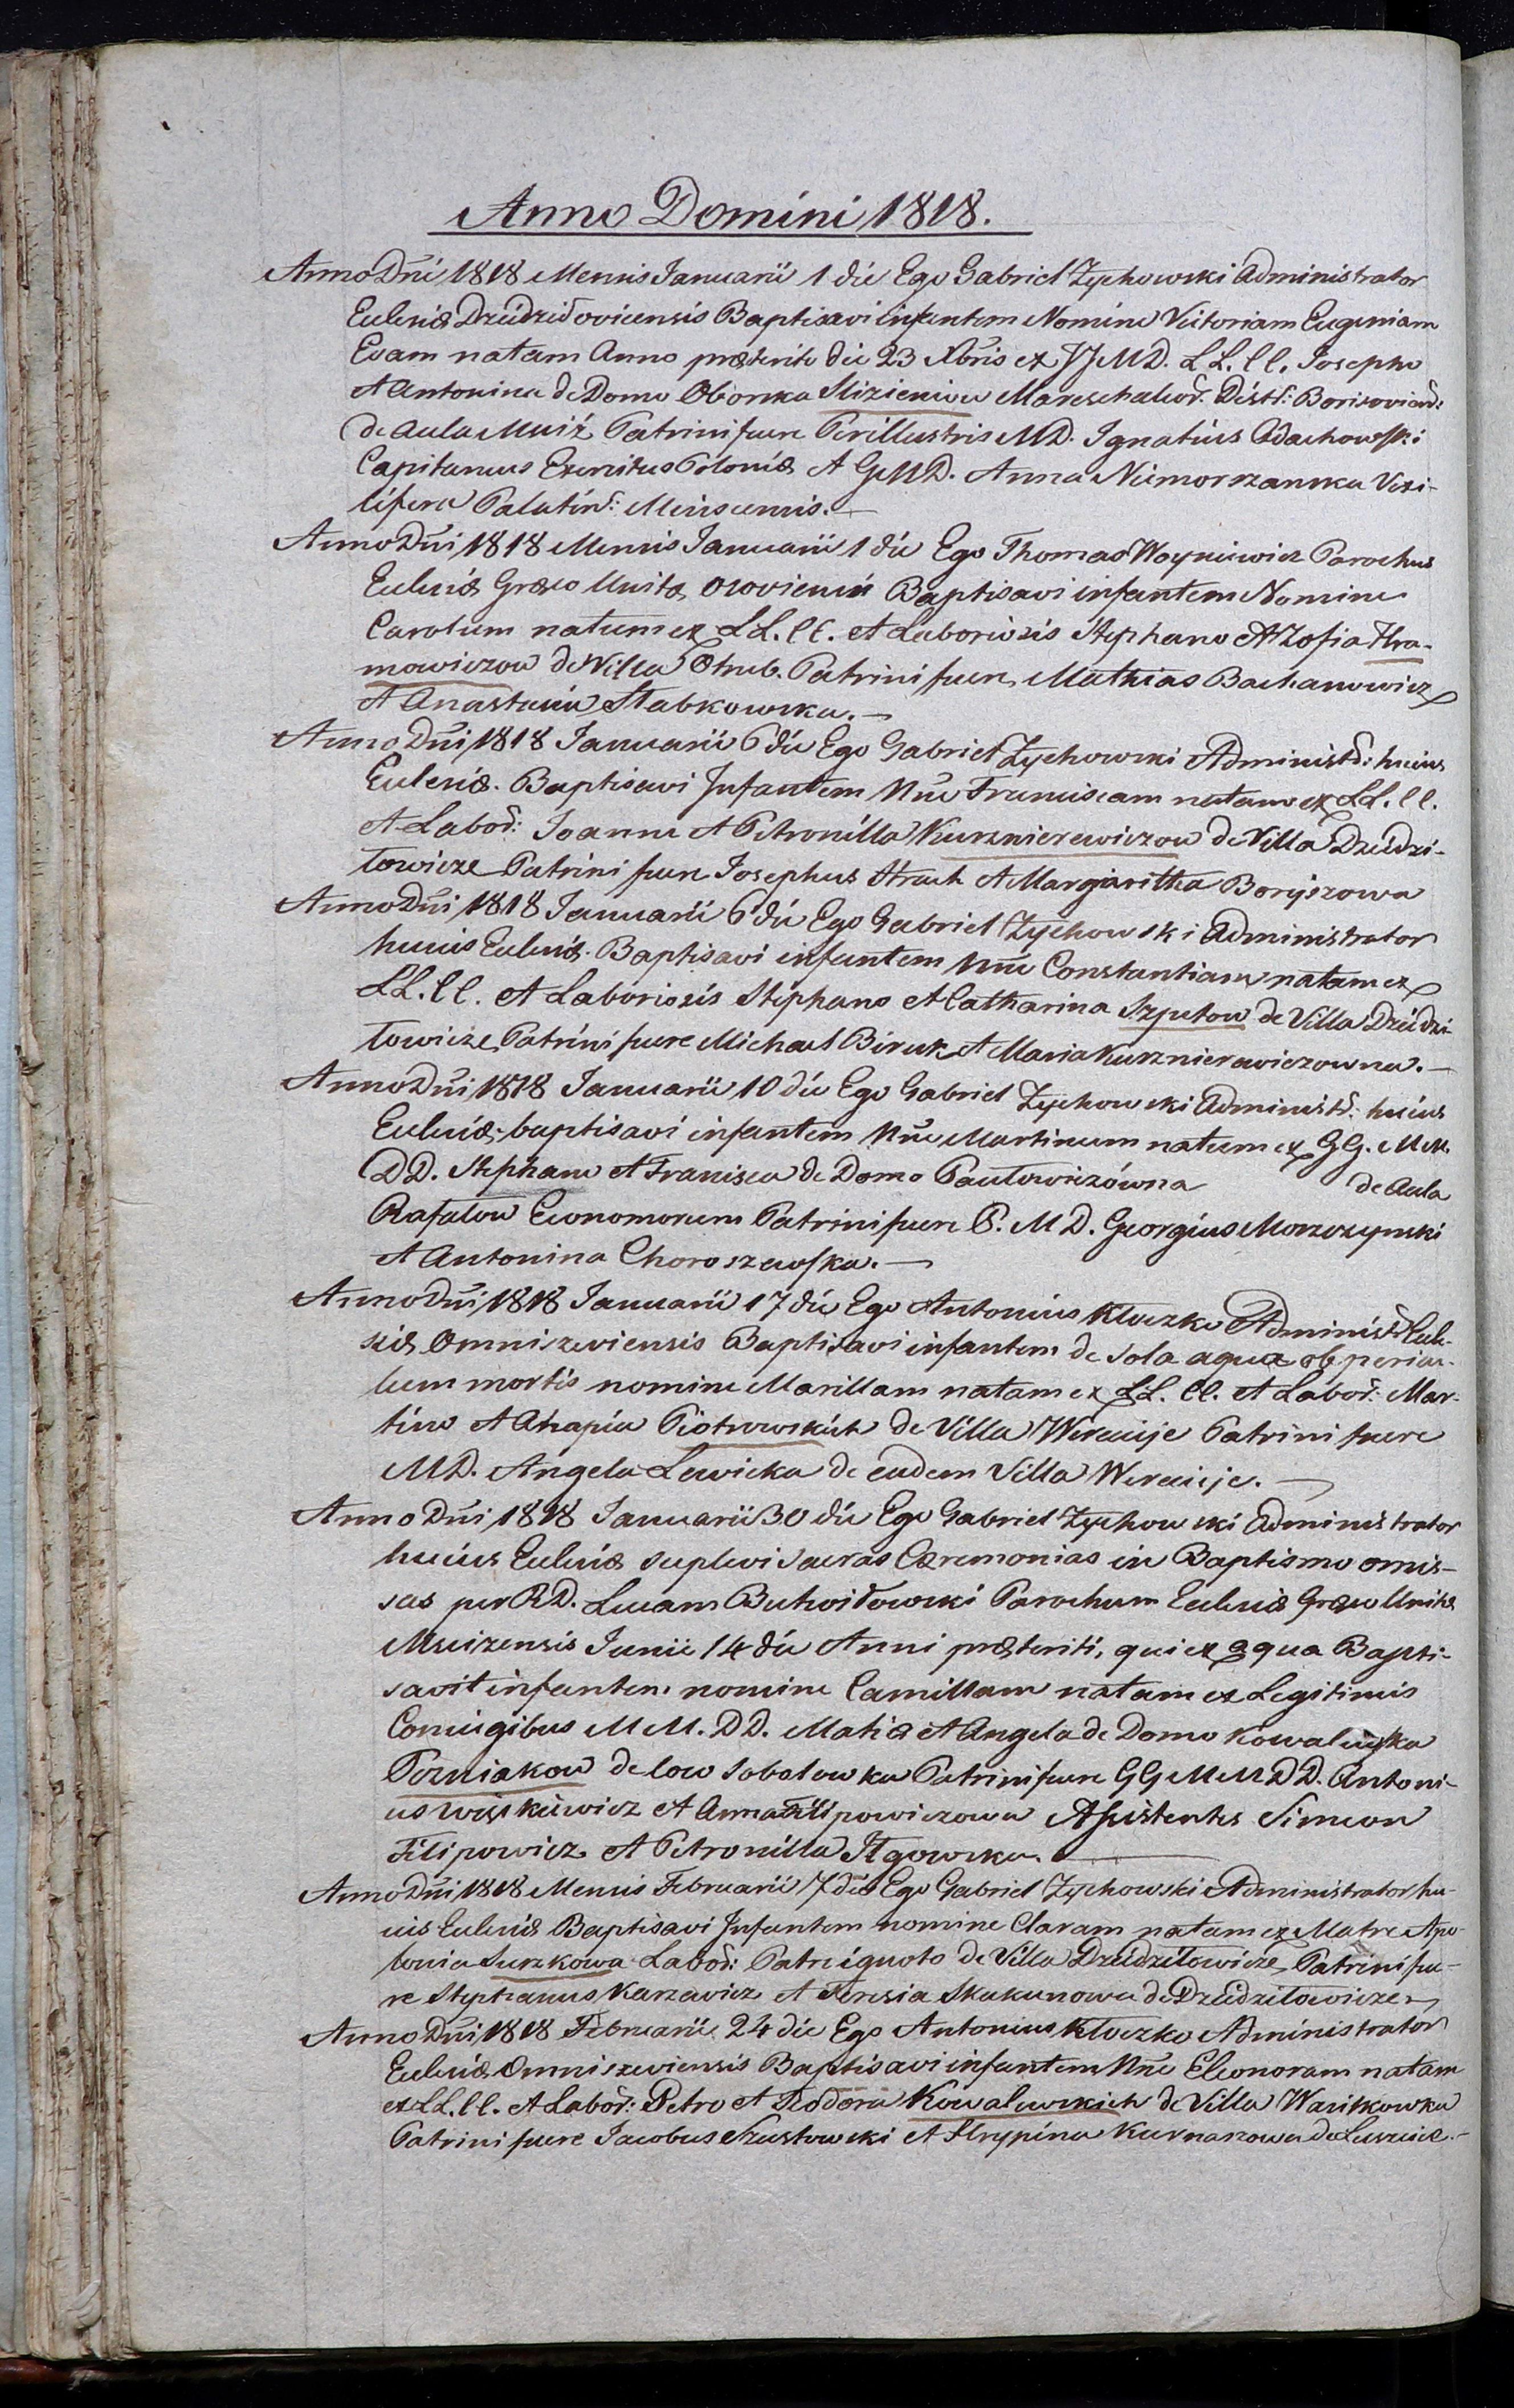 Anno Domini 1818.
Anno Dni 1818 Mensis Januarii 1 die Ego Gabriel Zychowski Administrator
Ecclesiæ Dziedziłovicensis Baptisavi infantem Nomine Victoriam Eugeniam
Evam natam Anno præterito die 23 Xbris ex JJMD. LL. CC. Josepho
et Antonina de Domo Oborska Slizieniow Mareschalcor. Distr: Borisoviens:
de Aula Mniż Patrini fuere Perillustris MD. Ignatius Odachowski
Capitaneus Exercitus Poloniæ et GMD. Anna Niemorszanska Vexi-
lifera Palatin: Minscensis. —
Anno Dni 1818 Mensis Januarii 1 die Ego Thomas Woyniewicz Parochus
Ecclesiæ Græco Unitæ Osoviensis Baptisavi infantem Nomine
Carolum natum ex LL. CC. et Laboriosis Stephano et Zofia Hra-
mowiczow de Villa Otrub. Patrini fuere Mathias Bachanowicz
et Anastasia Stabkowska. —
Anno Dni 1818 Januarii 6 die Ego Gabriel Zychowski Administr: huius
Ecclesiæ. Baptisavi Infantem Nne Franciscam natam ex LL. CC.
et Labor: Joanne et Petronilla Kursznierewiczow de Villa Dziedzi-
łowicze Patrini fuere Josephus Strach et Margaritha Boryszowa
Anno Dni 1818 Januarii 6 die Ego Gabriel Zychowski Administrator
huius Ecclesiæ. Baptisavi infantem Nne Constantiam natam ex
LL. CC. et Laboriosis Stephano et Catharina Szputow de Villa Dziedzi-
łowicze Patrini fuere Michael Biruk et Maria Kursznierewiczowna. —
Anno Dni 1818 Januarii 10 die Ego Gabriel Zychowski Administr: huius
Ecclesiæ. baptisavi infantem Nne Martinum natum ex GG. MM.
DD. Stephano et Francisca de Domo Pawłowiczówna de Aula
Rafałow Economorum Patrini fuere P. M D. Georgius Morzczynski
et Antonina Choroszewska. —
Anno Dni 1818 Januarii 17 die Ego Antonius Kłoczko Administr Eccle-
siæ Omniszeviensis Baptisavi infantem de sola aqua ob pericu-
lum mortis nomine Marillam natam ex LL. CC. et Labor: Mar-
tino et Ahapia Piotrowskich de Villa Wereicje Patrini fuere
MD. Angela Lewicka de eadem Villa Wereicje. —
Anno Dni 1818 Januarii 30 die Ego Gabriel Zychowski Administrator
huius Ecclesiæ suplevi Sacras Cæremonias in Baptismo omis-
sas per RD. Lucam Butwiłowski Parochum Ecclesiæ Græco Unitæ
Mniżensis Junii 14 die Anni præteriti, qui ex aqua Bapti-
savit infantem nomine Camillam natam ex Legitimis
Coniugibus MM. DD. Matia et Angela de Domo Kowalewska
Pozniakow de low Sobolowka Patrini fuere GG MM DD. Antoni-
us Wiskiewicz et Anna Filipowiczowa Assistentes Simeon
Filipowicz et Petronilla Iłgowska.
Anno Dni 1818 Mensis Februarii 7 die Ego Gabriel Zychowski Administrator hu-
ius Ecclesiæ Baptisavi Infantem nomine Claram natam ex Matre Apo-
lonia Surzkowa Labor: Patre ignoto de Villa Dziedziłowicze, Patrini fue-
re Stephanus Karzewicz et Teresia Skakunowa de Dziedziłowicze —
Anno Dni 1818 Februarii 24 die Ego Antonius Kłoczko Administrator
Ecclesiæ Omniszeviensis Baptisavi infantem Nne Eleonoram natam
ex LL. CC. et Labor: Petro et Teodora Kowalewskich de Villa Wasilkowka
Patrini fuere Jacobus Szustowski et Ahrypina Kurnaszowa de